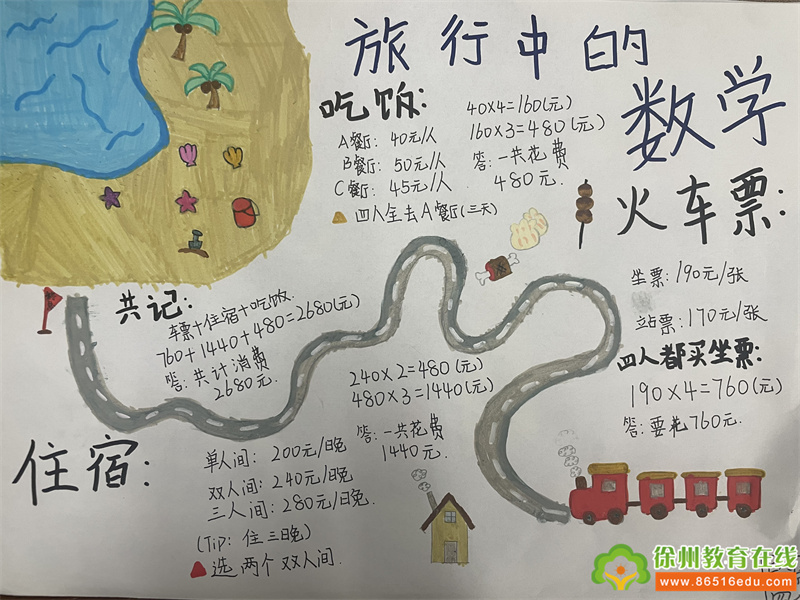 旅行中的
数学
吃饭:
A餐厅: 40元/人
B餐厅: 50元/人
C餐厅: 45元/人
△四人全去A餐厅(三天)
40×4=160(元)
160×3=480(元)
答:一共花费
480元.
火车票:
坐票:190元/张
站票:170元/张
四人都买坐票:
190×4=760(元)
答:要花760元.
共记:
车票+住宿+吃饭.
760+1440+480=2680(元)
答:共计消费
2680元.
住宿:
单人间: 200元/晚
双人间: 240元/晚
三人间: 280元/晚.
(Tip: 住三晚)
▲选两个双人间.
240×2=480(元)
480×3=1440(元)
答:一共花费
1440元.
徐州教育在线
www.86516edu.com